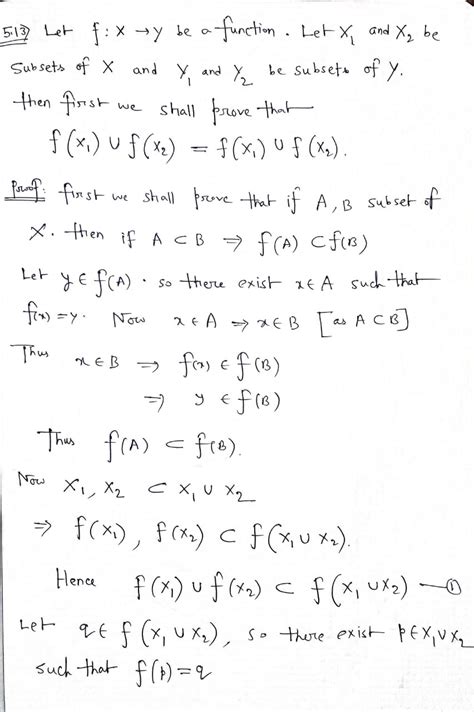 5.13) Let f: X → y be a function. Let X₁ and X₂ be
Subsets of X and Y₁ and Y₂ be subsets of Y.
then first we shall prove that
f(X₁) ∪ f(X₂) = f(X₁) ∪ f(X₂).
Proof: first we shall prove that if A, B subset of
X. then if A ⊂ B ⇒ f(A) ⊂ f(B)
Let y ∈ f(A). so there exist x ∈ A such that
f(x) = y. Now x ∈ A ⇒ x ∈ B [as A ⊂ B]
Thus x ∈ B ⇒ f(x) ∈ f(B)
⇒ y ∈ f(B)
Thus f(A) ⊂ f(B).
Now X₁, X₂ ⊂ X₁ ∪ X₂
⇒ f(X₁), f(X₂) ⊂ f(X₁ ∪ X₂).
Hence f(X₁) ∪ f(X₂) ⊂ f(X₁ ∪ X₂) — ①
Let q ∈ f(X₁ ∪ X₂), so there exist p ∈ X₁ ∪ X₂
such that f(p) = q